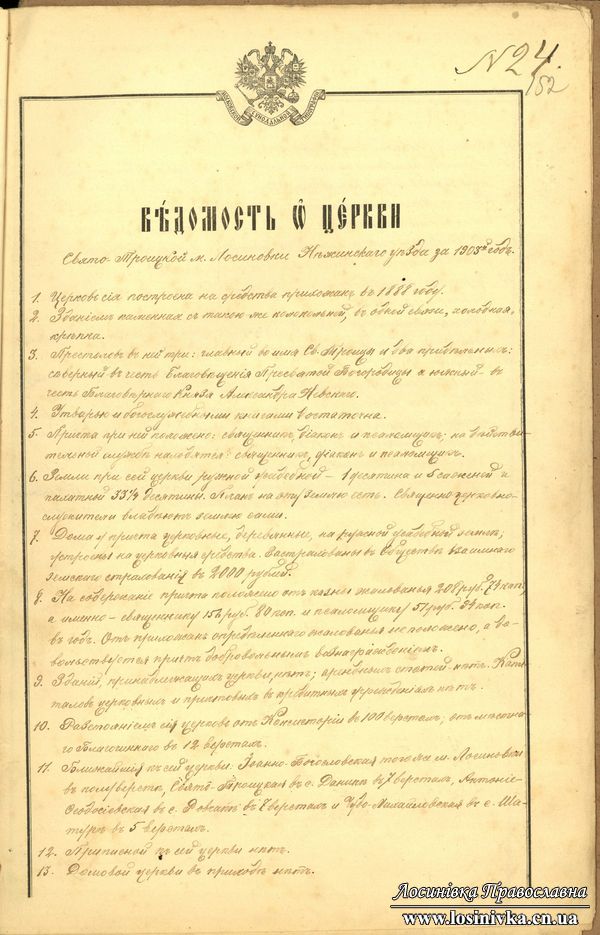 N 24
/52
МОСКОВСКОЙ СѴНОДАЛЬНОЙ ТИПОГРАФІИ
ВѢДОМОСТЬ Ѡ ЦЕ́РКВИ
Свято-Троицкой м. Лосиновки Нѣжинскаго уѣзда за 1903й годъ.
1. Церковь сія построена на средства прихожанъ въ 1888 году.
2. Зданіемъ каменная съ такою же колокольней, въ одной связи, холодная,
крѣпка.
3. Престоловъ въ ней три: главный во имя Св. Троицы и два придѣльныхъ:
сѣверный въ честь Благовѣщенія Пресвятой Богородицы а южный въ
честь Благовѣрнаго Князя Александра Невскаго.
4. Утварью и богослужебными книгами достаточна.
5. Причта при ней положено: священникъ, діаконъ и псаломщикъ; на дѣйстви-
тельной службѣ находятся: священникъ, діаконъ и псаломщикъ.
6. Земли при сей церкви ружной усадебной – 1 десятина и 5 саженей и
пахатной 33¼ десятины. Планъ на эту землю есть. Священно церковно-
служители владѣютъ землею сами.
7. Дома у причта церковные, деревянные, на ружной усадебной землѣ;
устроены на церковныя средства. Застрахованы въ Обществѣ взаимнаго
земскаго страхованія въ 2000 рублей.
8. На содержаніе причта положено отъ казны жалованья 208 руб. 74 коп,
а именно – священнику 156 руб. 80 коп. и псаломщику 51 руб. 94 коп.
въ годъ. Отъ прихожанъ опредѣленнаго жалованья не положено, а до-
вольствуется причтъ добровольнымъ вознагражденіемъ.
9. Зданій, принадлежащихъ церкви, нѣтъ; оброчныхъ статей нѣтъ. Капи
таловъ церковныхъ и причтовыхъ въ кредитныхъ учрежденіяхъ нѣтъ.
10. Разстояніемъ сія церковь отъ Консисторіи въ 100 верстахъ; отъ мѣстна-
го Благочиннаго въ 12 верстахъ.
11. Ближайшія къ сей церкви: Іоанно-Богословская того же м. Лосиновки
въ полуверстѣ, Свято-Троицкая въ с. Данинѣ въ 7 верстахъ, Антоніе-
Ѳеодосіевская въ с. въ 8 верстахъ и Чудо-Михайловская въ с. Ша-
турѣ въ 5 верстахъ.
12. Приписной къ сей церкви нѣтъ.
13. Домовой церкви въ приходѣ нѣтъ.
Лосинівка Православна
www.losinivka.cn.ua